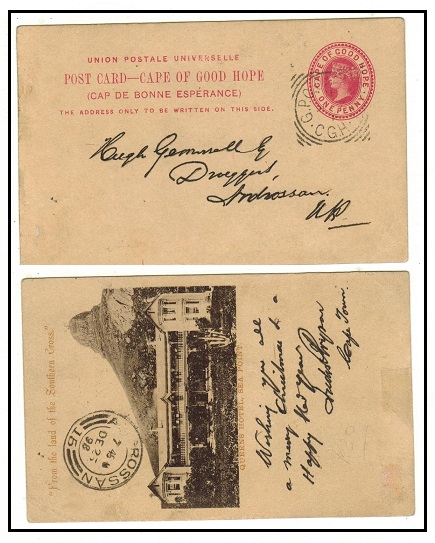 UNION POSTALE UNIVERSELLE
POST CARD—CAPE OF GOOD HOPE
(CAP DE BONNE ESPÉRANCE)
THE ADDRESS ONLY TO BE WRITTEN ON THIS SIDE.
CAPE OF GOOD HOPE
ONE PENNY
G.P.O.
C.G.H.
Hugh Gemmell
Druggist,
Ardrossan.
"From the land of the Southern Cross."
QUEENS HOTEL, SEA POINT
ROSSAN
7 45
DE 21
98
15
Wishing you all
a merry Christmas & a
Happy New Year
Cape Town.